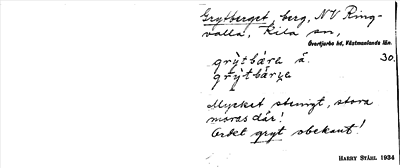 Grytberget, berg, NV Ring-
valla, Kila sn,
Övertjurbo hd, Västmanlands län.
grỳtbá̀ra ä. 30.
grỳtbárjε
Mycket stenigt, stora
moras där!
Ordet gryt obekant!
HARRY STÅHL 1934